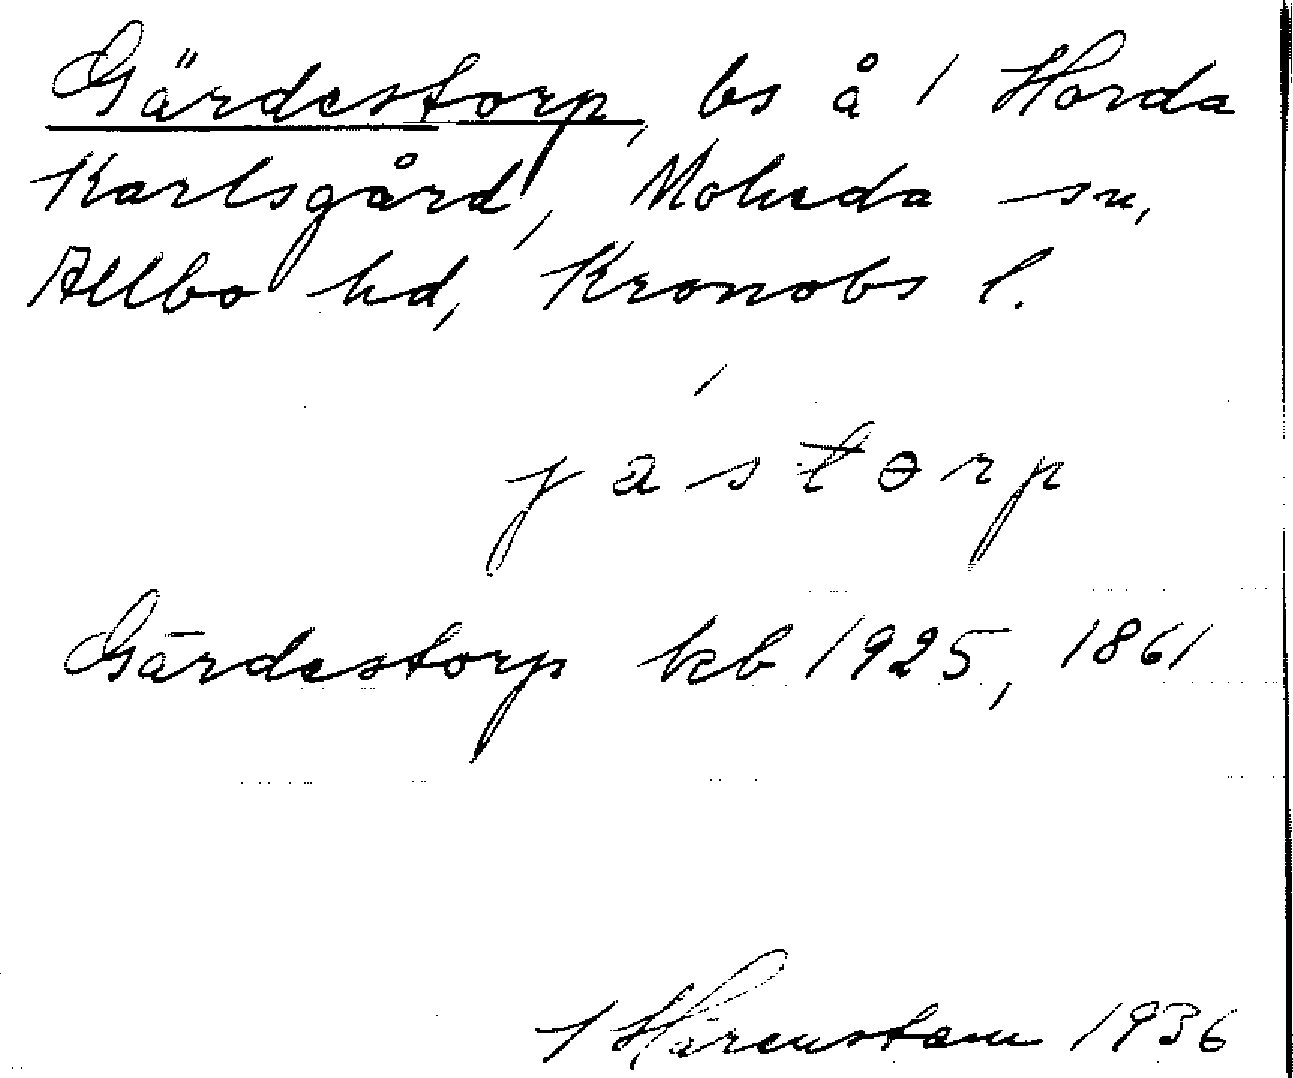 Gärdestorp, bs å 1 Horda
Karlsgård, Moheda sn,
Allbo hd, Kronobs l.
jástorp
Gärdestorp kb 1925, 1861
Härenstam 1936